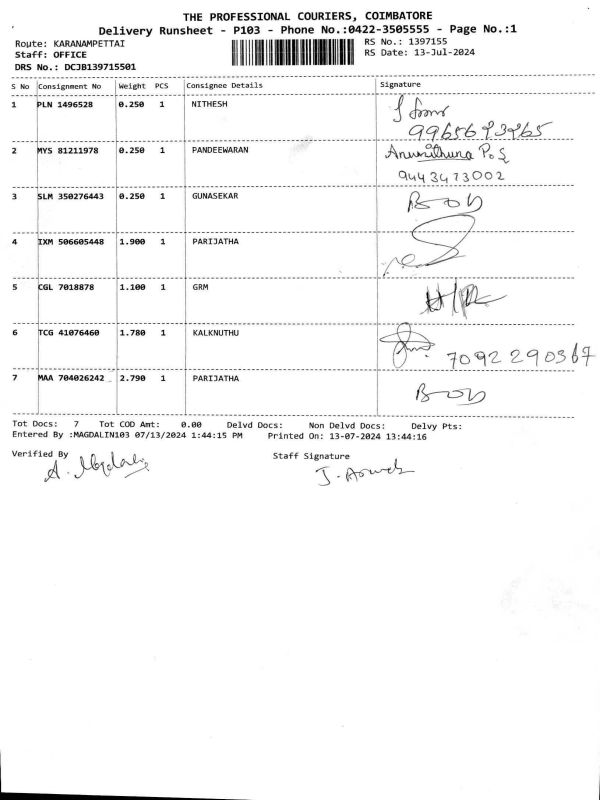 THE PROFESSIONAL COURIERS, COIMBATORE
Delivery Runsheet - P103 - Phone No.:0422-3505555 - Page No.:1
Route: KARANAMPETTAI RS No.: 1397155
Staff: OFFICE RS Date: 13-Jul-2024
DRS No.: DCJB139715501
S No Consignment No Weight PCS Consignee Details Signature
1 PLN 1496528 0.250 1 NITHESH
2 MYS 81211978 0.250 1 PANDEEWARAN
9443473002
3 SLM 350276443 0.250 1 GUNASEKAR
4 IXM 506605448 1.900 1 PARIJATHA
5 CGL 7018878 1.100 1 GRM
6 TCG 41076460 1.780 1 KALKNUTHU
7092290367
7 MAA 704026242 2.790 1 PARIJATHA
Tot Docs: 7 Tot COD Amt: 0.00 Delvd Docs: Non Delvd Docs: Delvy Pts:
Entered By :MAGDALIN103 07/13/2024 1:44:15 PM Printed On: 13-07-2024 13:44:16
Verified By Staff Signature